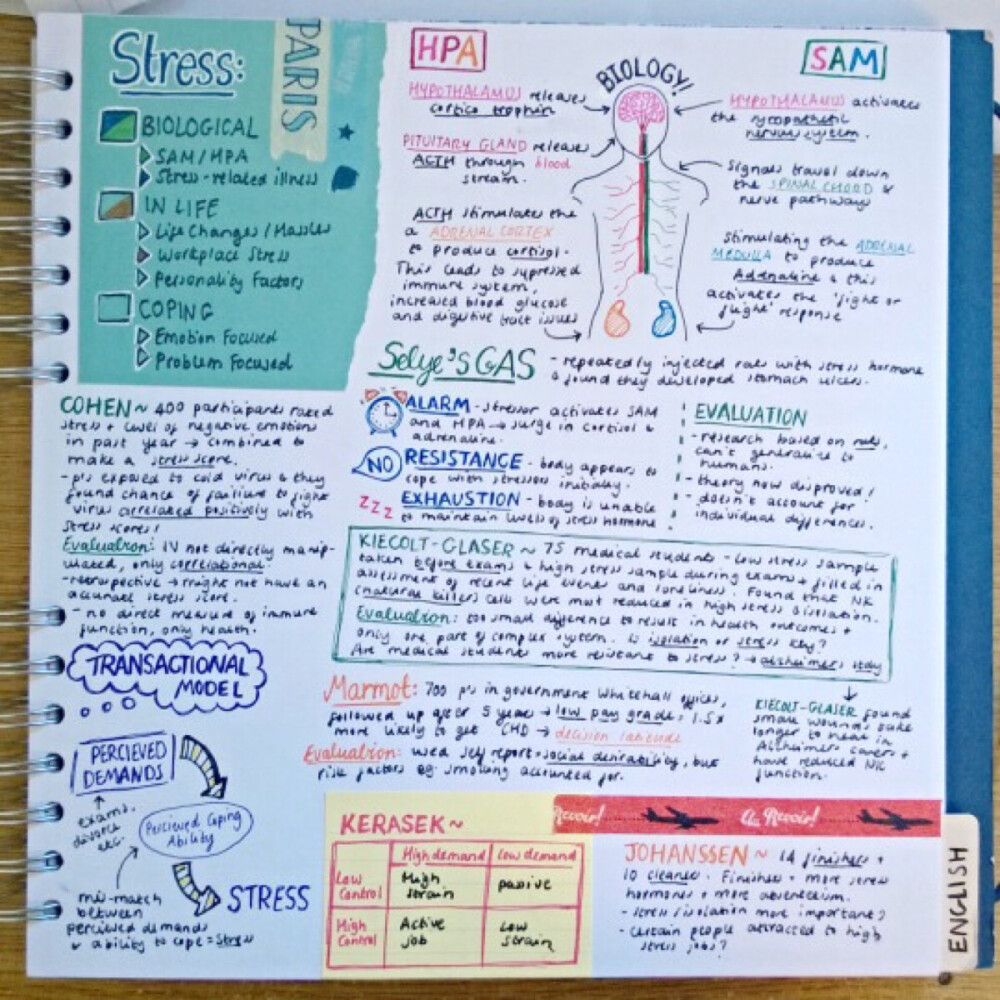 Stress:
PARIS
BIOLOGICAL
SAM/HPA
Stress-related illness
IN LIFE
Life Changes/Hassles
Workplace Stress
Personality Factors
COPING
Emotion Focused
Problem Focused
HPA
BIOLOGY!
SAM
HYPOTHALAMUS releases
cortico trophin
PITUITARY GLAND releases
ACTH through blood
stream.
ACTH stimulates the
a ADRENAL CORTEX
to produce cortisol.
This leads to supressed
immune system,
increased blood glucose
and digestive tract issues
HYPOTHALAMUS activates
the sympathetic
nervous system.
Signals travel down
the SPINAL CHORD &
nerve pathways
Stimulating the ADRENAL
MEDULLA to produce
Adrenaline & this
activates the 'fight or
flight' response
Selye's GAS - repeatedly injected rats with stress hormone
& found they developed stomach ulcers.
ALARM - stressor activates SAM
and HPA → surge in cortisol &
adrenaline.
NO RESISTANCE - body appears to
cope with stressors initially.
zzz EXHAUSTION - body is unable
to maintain levels of stress hormone
EVALUATION
- research based on rats,
can't generalise to
humans.
- theory now disproved!
- doesn't account for
individual differences.
COHEN ~ 400 participants rated
stress + level of negative emotions
in past year → combined to
make a stress score.
- p's exposed to cold virus & they
found chance of failure to fight
virus correlated positively with
stress scores!
Evaluation: IV not directly manip-
ulated, only correlational.
- retrospective → might not have an
accurate stress score.
- no direct measure of immune
function, only health.
KIECOLT-GLASER ~ 75 medical students - low stress sample
taken before exams & high stress sample during exams + filled in
assessment of recent life events and loneliness. Found that NK
(natural killers) cells were most reduced in high stress & isolation.
Evaluation: too small difference to result in health outcomes +
only one part of complex system. Is isolation or stress key?
Are medical students more resistant to stress? → alzheimers study
KIECOLT-GLASER found
small wounds take
longer to heal in
Alzheimers carers +
have reduced NK
function.
Marmot: 700 p's in government Whitehall offices,
followed up after 5 years → low pay grade: 1.5x
more likely to get CHD → decision latitude
Evaluation: used self report = social desirability, but
risk factors eg smoking accounted for.
TRANSACTIONAL
MODEL
PERCIEVED
DEMANDS
exams,
divorce
etc.
Percieved Coping
Ability
STRESS
mis-match
between
percieved demands
& ability to cope = stress
KERASEK ~
High demand Low demand
Low Control High strain passive
High Control Active job Low strain
Revoir! Au Revoir!
JOHANSSEN ~ 14 finishers +
10 cleaners. Finishers = more stress
hormones + more absenteeism.
- stress/isolation more important?
- certain people attracted to high
stress jobs?
ENGLISH